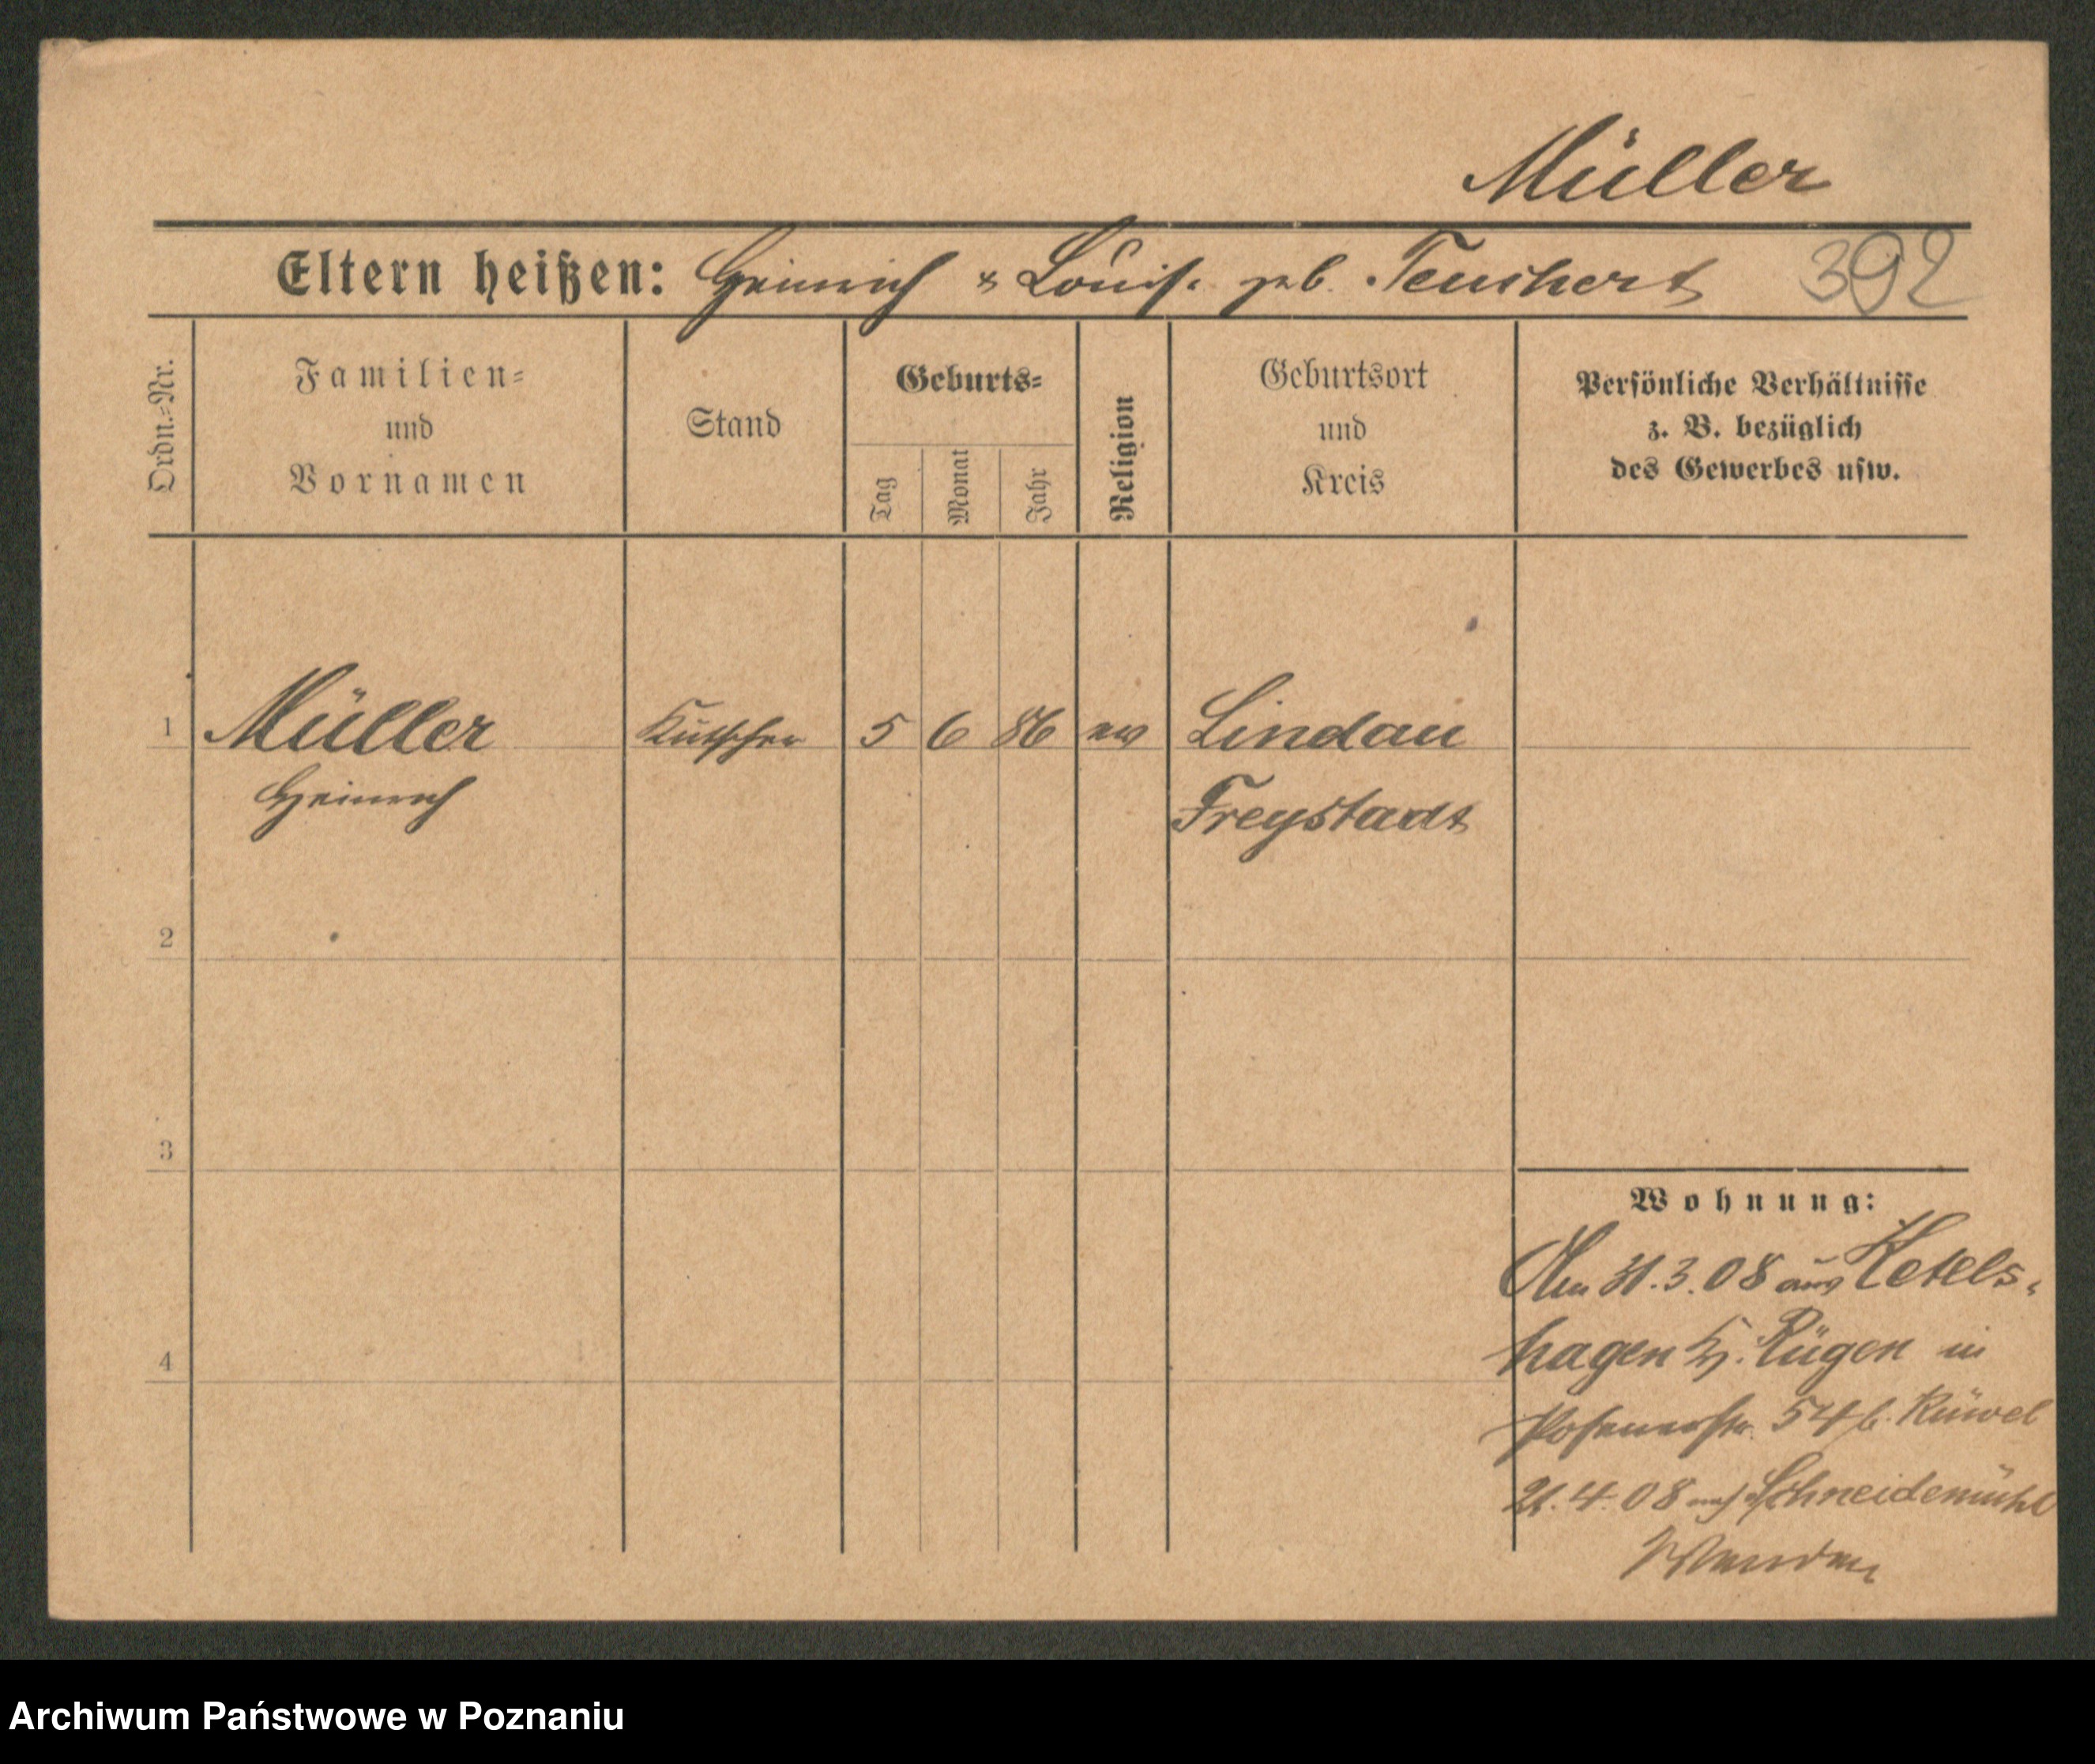 Müller
Eltern heißen: Heinrich & Louise geb. Teuchert 392
Ordn.-Nr.
Familien-
und
Vornamen
Stand
Geburts-
Tag
Monat
Jahr
Religion
Geburtsort
und
Kreis
Persönliche Verhältnisse
z. B. bezüglich
des Gewerbes usw.
1 Müller Kutscher 5 6 86 ev Lindau
Heinrich Freystadt
2
3
4
Wohnung:
Am 31.3.08 aus Ketels-
hagen Rügen in
Posenerstr. 54 b. Rüwel
21.4.08 nach Schneidemühl
Archiwum Państwowe w Poznaniu